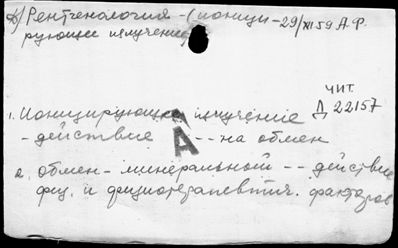 б) Рентгенология - (ионизи - 29/XI 59 А.Ф.
рующее излучение)
ЧИТ.
Д 22157
1. Ионизирующее излучение
- действие -- на обмен
А
2. обмен - минеральный -- действие
физ. и физиотерапевтич. факторов